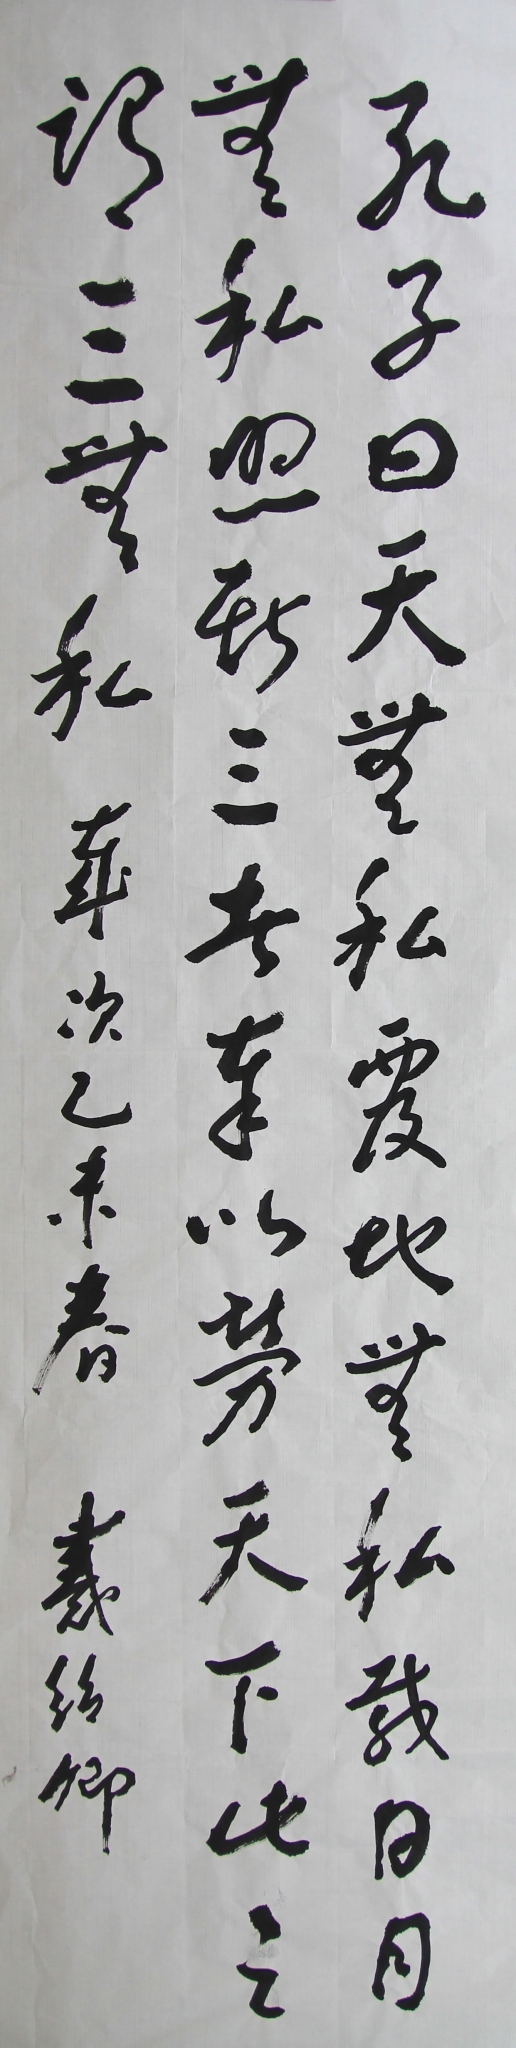 孔子曰天無私覆地無私載日月
無私照斯三者奉以勞天下此之
謂三無私 歲次乙未春 戴紹卿